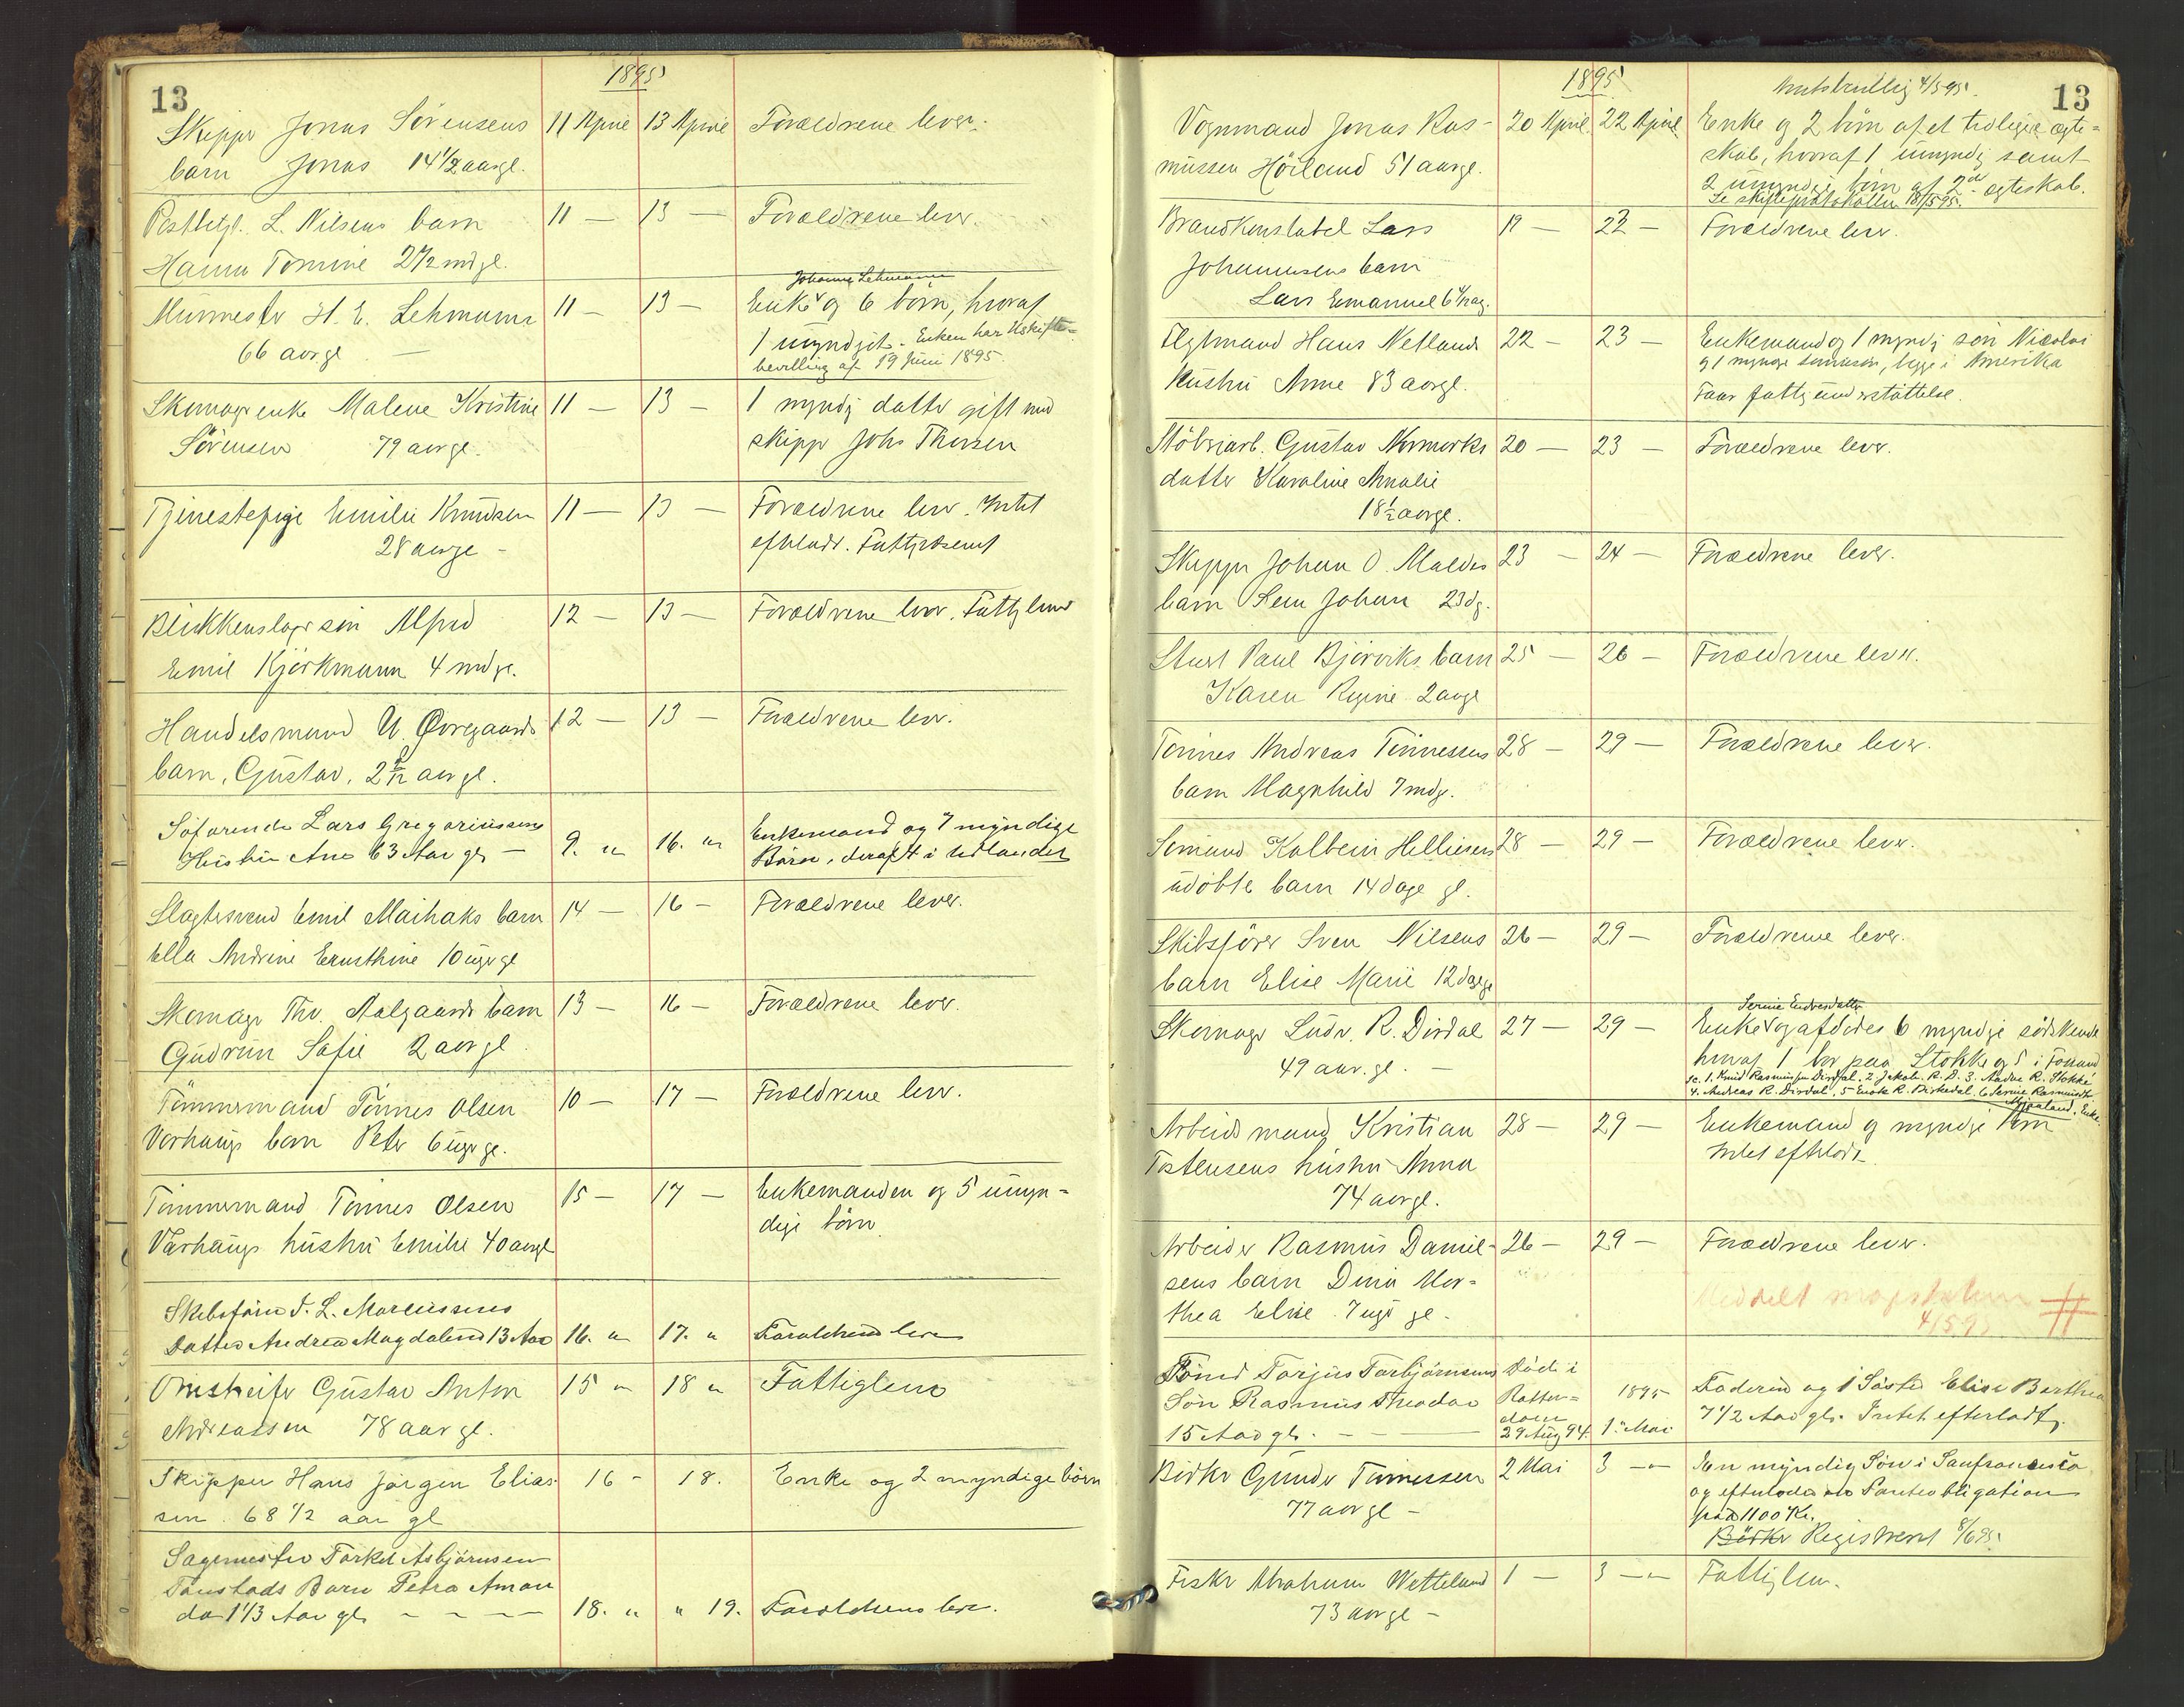 13
1895
Skipper Jonas Sörensens 11 April 13 April Forældrene lever.
barn Jonas 14 1/2 aar gl.
Postbetj. L. Nilsens barn 11 — 13 — Forældrene lever.
Hanna Tomine 2 1/2 md gl.
Johanne Lehmann
Murmester H. E. Lehmann 11 — 13 — Enke og 6 börn, hvoraf
66 aar gl — 1 umyndigt. Enken har Uskifte-
bevilling af 19 Juni 1895.
Skomagerenke Malene Kristine 11 — 13 — 1 myndig datter gift med
Sörensen 79 aar gl. skipper Johs Thorsen
Tjenestepige Emilie Knudsen 11 — 13 — Forældrene lever. Intet
28 aar gl —
Blikkenslager sön Alfred 12 — 13 — Forældrene lever. Fattiglem
Emil Kjörkmann 4 md gl.
Handelsmand U. Øvregaards 12 — 13 — Forældrene lever.
barn, Gustav, 2 aar gl.
Söfarende Lars Gregoriussens 9. " 16. " Enkemand og 7 myndige
Hustru Ane 63 Aar gl — Börn, deraf 4 i Udlandet
Slagtersvend Emil Maihaks barn 14 — 16 — Forældrene lever.
Ella Andrine Ernsthine 10 uger gl
Skomager Thv. Aalgaards barn 13 — 16 — Forældrene lever.
Gudrun Sofie 2 aar gl
Tömmermand Tönnes Olsen 10 — 17 — Forældrene lever.
Varhaugs barn Peter 6 uger gl.
Tömmermand Tönnes Olsen 15 — 17 — Enkemanden og 5 umyn-
Varhaugs hustru Emilie 40 aar gl dige börn
Skibsförer T. L. Marcussens
Datter Andrea Magdalene 13 Aar 16. " 17. " Forældrene lever
Omstreifer Gustav Anton 15 " 18 " Fattiglem
Andreassen 78 aar gl.
Skipper Hans Jörgen Elias- 16 — 18. Enke og 2 myndige börn
sen. 68 1/2 aar gl
Sagemester Torkel Asbjörnsen
Tonstads Barn Petra Aman
da 1 1/3 Aar gl. — — — 18. " " 19. Forældrene lever.
1895 4/5 95. 13
Vognmand Jonas Ras- 20 April 22 April Enke og 2 börn af et tidligere ægte-
mussen Höiland 51 aar gl. skab, hvoraf 1 umyndig samt
2 umyndige börn af 2det ægteskab.
Se skifteprotokollen 18/5 95.
Brandkonstabel Lars 19 — 22 — Forældrene lever.
Johannesens barn
Lars Emanuel 6
Hans Netlands 22 — 23 — Enkemand og 1 myndig sön Nicolai
Hustru Anne 83 aar gl. og 1 myndig sönnesön, begge i Amerika
Faar fattigunderstöttelse.
Stöberiarb. Gustav Normarks 20 — 23 — Forældrene lever.
datter Karoline Amalie
18 1/2 aar gl.
Skipper Johan O. Maldes 23 — 24 — Forældrene lever.
barn Johan 23 dg.
Stuert Paul Björviks barn 25 — 26 — Forældrene lever.
Karen Regine 2 aar gl
Tönnes Andreas Tönnessens 28 — 29 — Forældrene lever.
barn Magnhild 7 md gl.
Sömand Kolbein Helliesens 28 — 29 — Forældrene lever.
udöbte barn 14 dage gl.
Skibsförer Sven Nilsens 26 — 29 — Forældrene lever.
barn Elise Marie 12 dage gl
Serine Endresdatter
Skomager Ludv. R. Dirdal 27 — 29 — Enke og afdödes 6 myndige södskende
49 aar. gl. — hvoraf 1 bor paa Stokke og 5 i Forsand
se. 1. Knud Rasmussen Dirdal, 2 Jakob R. D. 3. Madne R. Stokke
4. Andreas R. Dirdal, 5 Enok R. Dirkedal. 6 Serine Rasmusdtr
Mjaaland, Enke.
Arbeidsmand Kristian 28 — 29 — Enkemand og myndige börn
Tostensens hustru Anna Intet efterladt
74 aar gl.
Arbeider Rasmus Daniel- 26 — 29 — Forældrene lever.
sens barn Dina Mar-
thea Elise 7 uger gl.
Meddelt magistraten
4/5 95 #
Tönd Torjus Torbjörnsens Död i
Sön Rasmus Theodor Rotter- 1895 Faderen og 1 Söster Elise Berthea
15 Aar gl. — — dam 7 1/2 Aar gl. Intet efterladt.
29 Aug 94. 1. Mai
Bödker Gunder Tönnessen 2 Mai 3 — En myndig Sön i Sanfrancisco
77 aar gl — og efterlader en Panteobligation
paa 1100 Kr.
Bödker Registreret 8/6 95.
Fisker Abraham Wetteland 1 — 3 — Fattiglem.
73 aar gl —